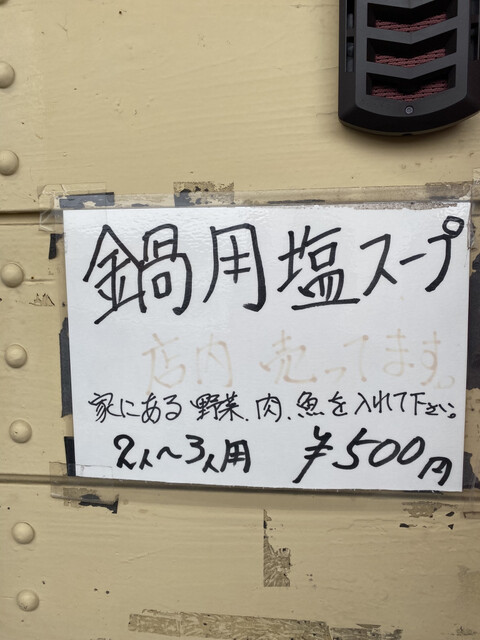 鍋用塩スープ
店内 売ってます。
家にある野菜、肉、魚を入れて下さい。
2人〜3人用 ¥500円